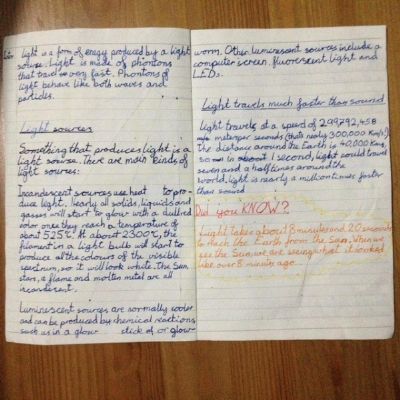 light is a form of energy produced by a light
sourse. Light is made of phontons
that travel very fast. Phontons of
light behave like both waves and
particles.
Light sources
Something that produces light is a
light sourse. There are main kinds of
light sources:
Incandescent sources use heat to pro-
duce light. Nearly all solids, liquids and
gasses will start to glow with a dull red
color once they reach a temperature of
about 525°C. At about 2300°C, the
filament in a light bulb will start to
produce all the colours of the visible
spectrum, so it will look white. The Sun,
stars, a flame and molten metal are all
incandescent.
Luminescent sources are normally cooler
and can be produced by chemical reactions,
such as in a glow stick or glow-
worm. Other luminescent sources include a
computer screen, fluorescent light and
LEDs.
Light travels much faster than sound
Light travels at a speed of 299,792,458
meter per seconds (thats nearly 300,000 Km/s!)
The distance around the Earth is 40,000 Km,
so in 1 second, light could travel
seven and a half times around the
world. light is nearly a million times faster
than sound
Did you KNOW?
Light takes about 8 minutes and 20 seconds
to reach the Earth from the Sun. When we
see the Sun, we are seeing what it looked
like over 8 minutes ago.